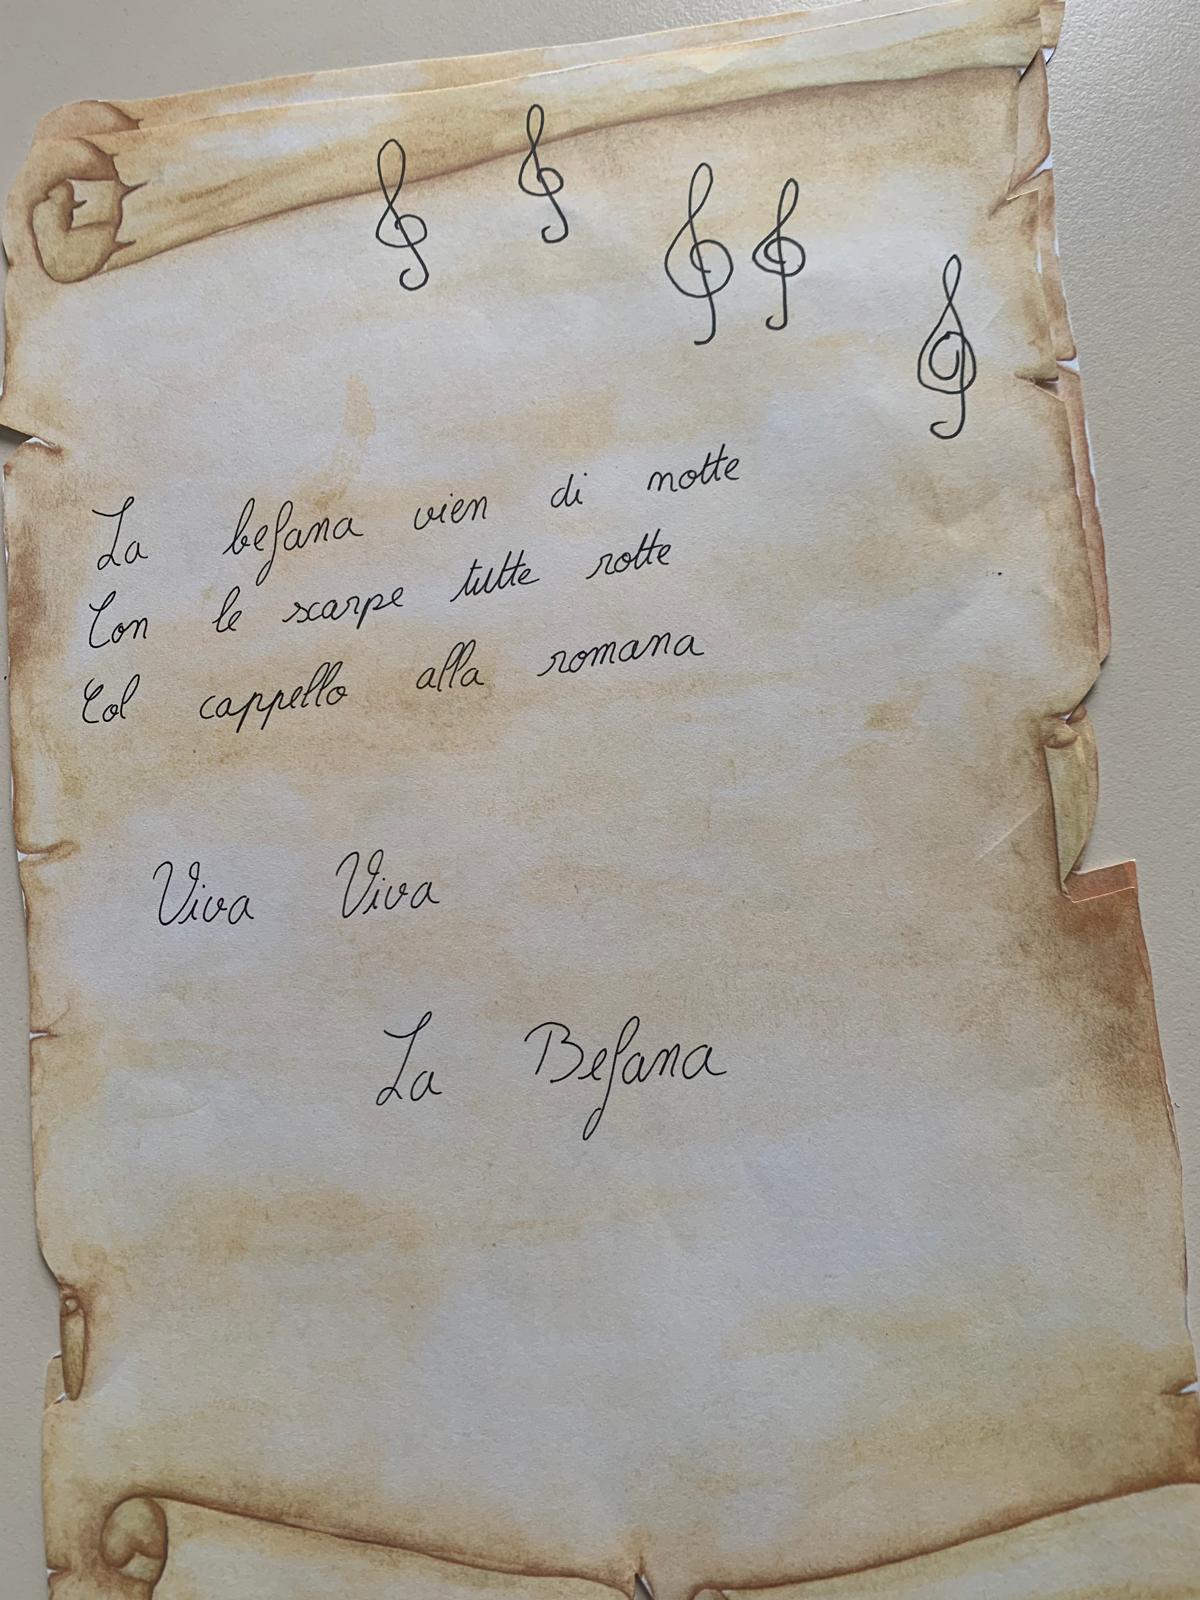 La befana vien di notte
Con le scarpe tutte rotte
Col cappello alla romana
Viva Viva
La Befana